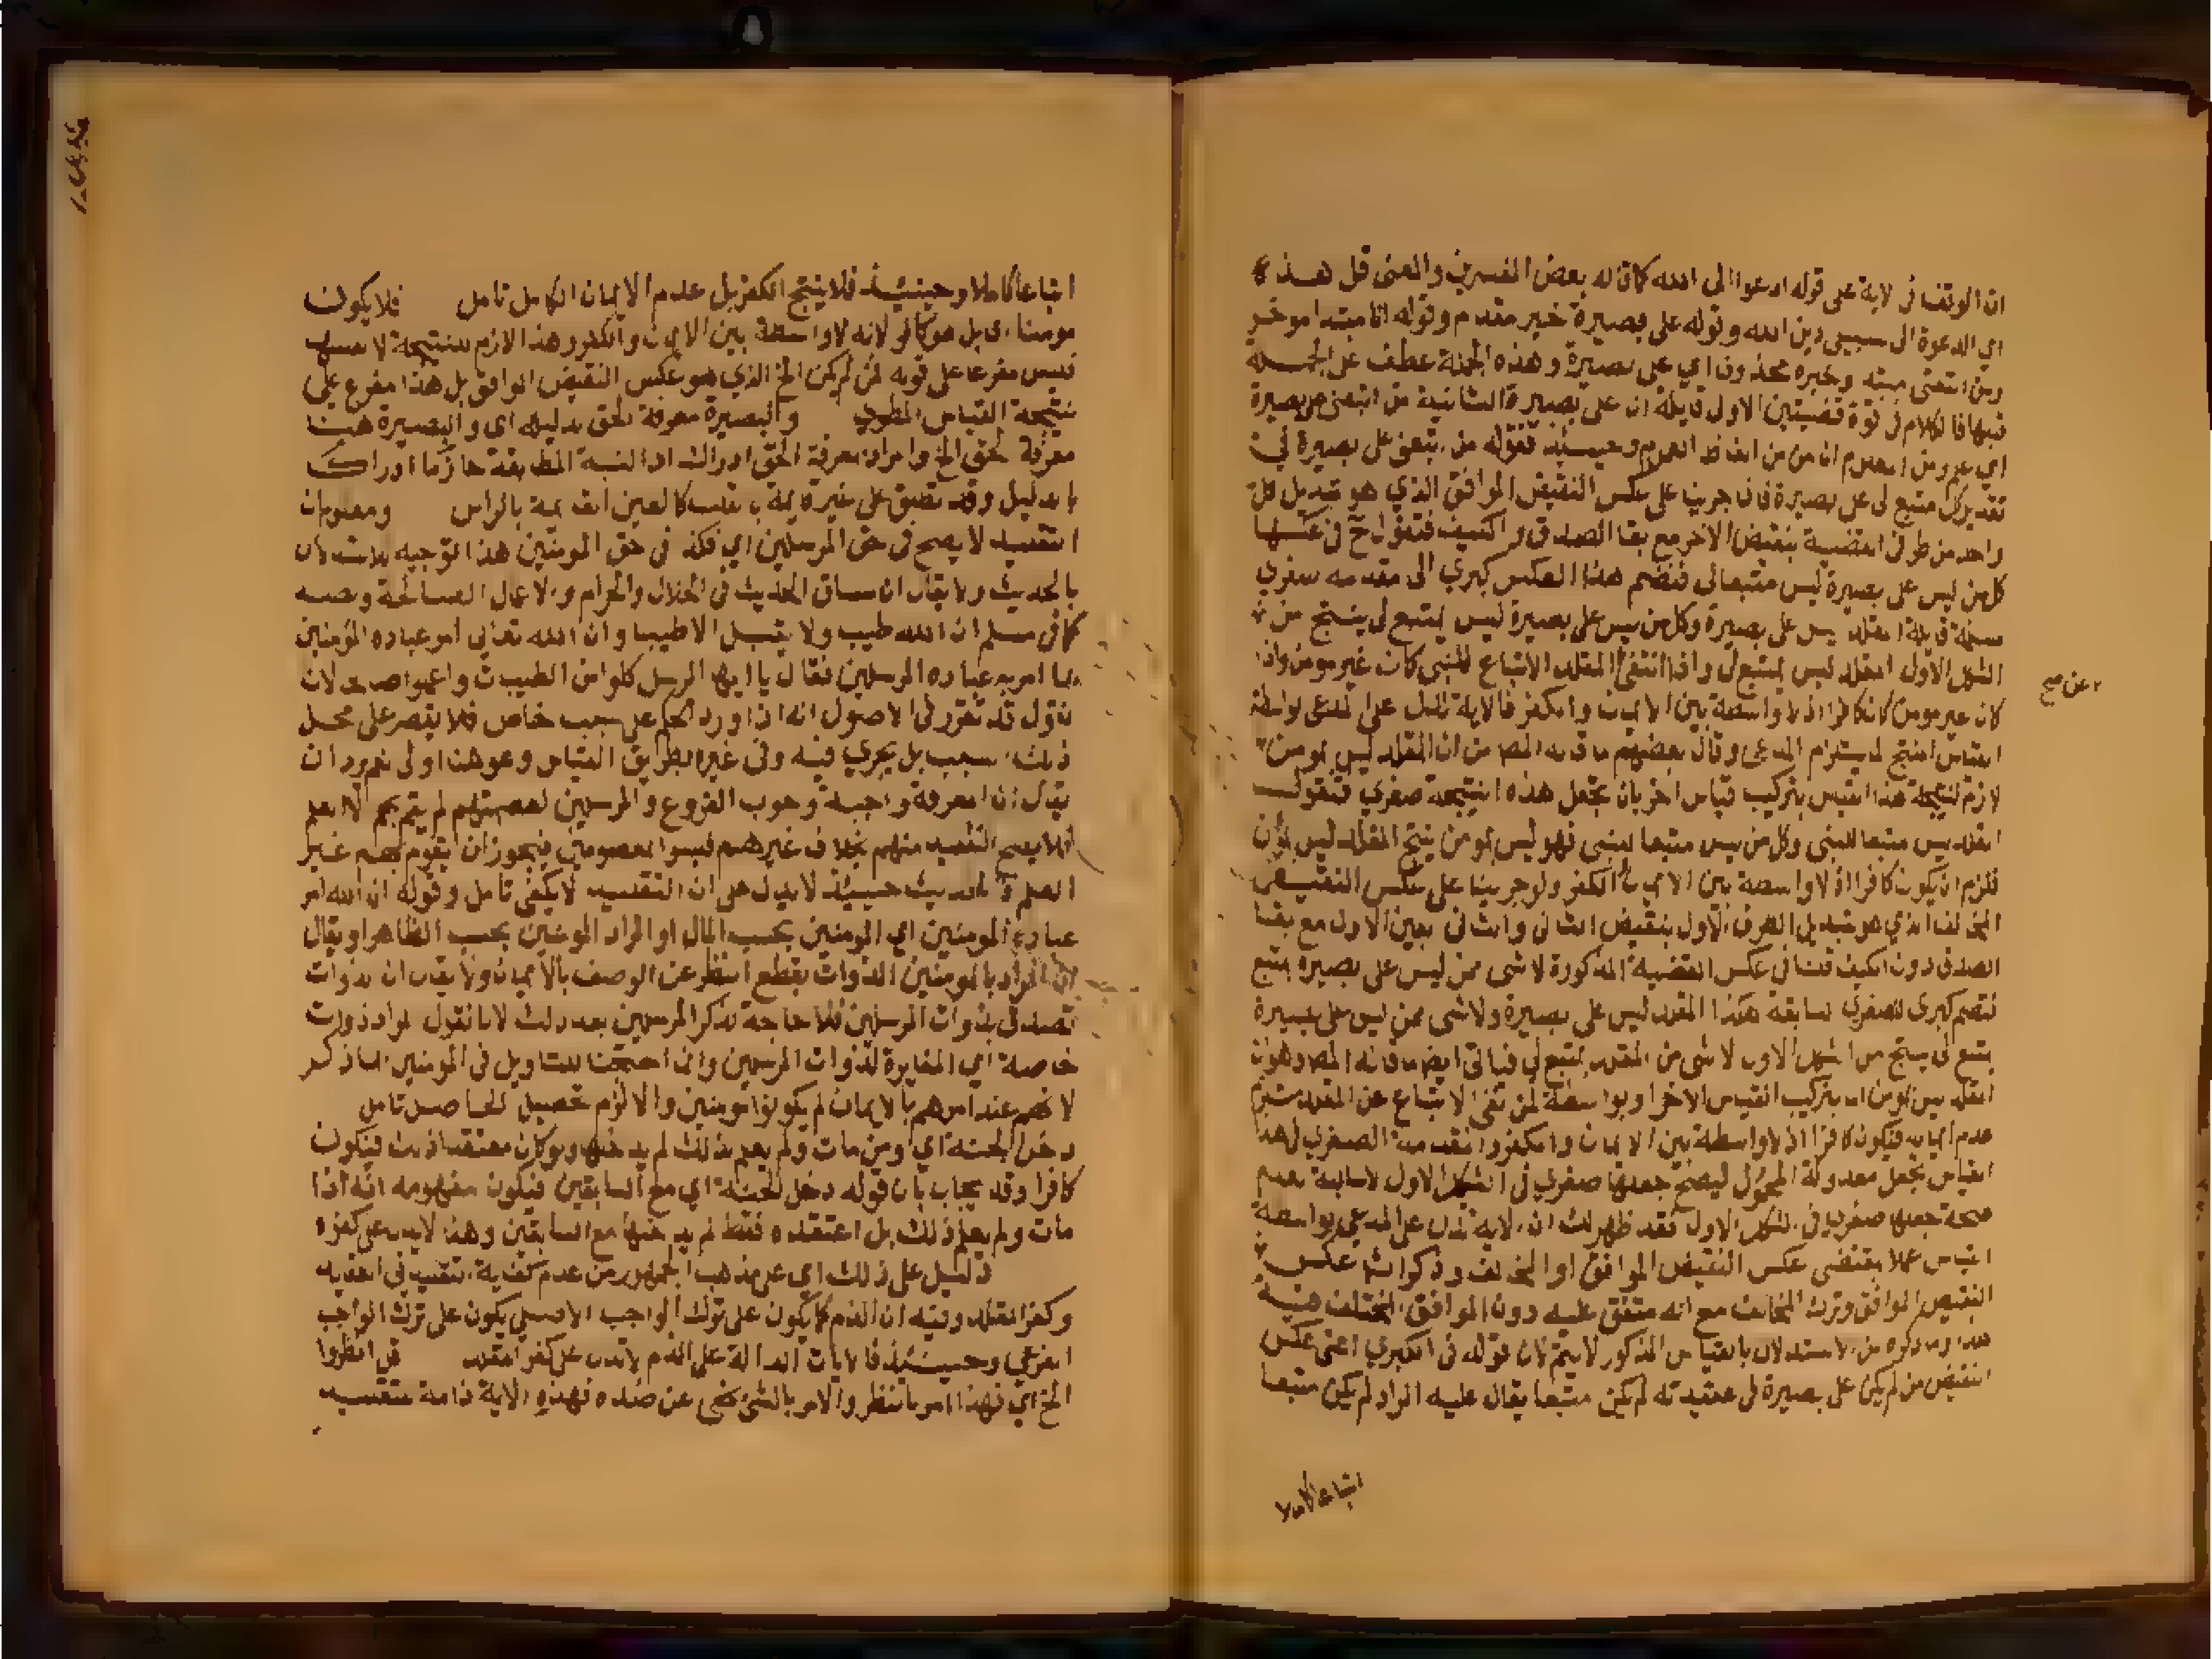 ان الوقف في الاية على قوله ادعوا الى الله كما قاله بعض المفسرين والمعنى قل هذه
اي الدعوة الى سبيلي دين الله وقوله على بصيرة خبر مقدم وقوله انا مبتدا موخر
ومن اتبعني مبتدا وخبره محذوف اي على بصيرة وهذه الجملة عطف على الجملة
قبلها فالكلام في قوة قضيتين الاولى قايلة انا على بصيرة الثانية من اتبعني على بصيرة
اي عموم ان من من الفاظ العموم وحينئذ فقوله من اتبعني على بصيرة في
تقدير كل متبع لي على بصيرة فان جرينا على عكس النقيض الموافق الذي هو تبديل كل
واحد من طرفي القضية بنقيض الاخر مع بقا الصدق والكيف فنقول ح في عكسها
كل من ليس على بصيرة ليس متبعا لي فنضم هذا العكس كبرى الى مقدمه صغرى
قايلة المقلد ليس على بصيرة وكل من ليس على بصيرة ليس بمتبع لي ينتج من
الشكل الاول المقلد ليس بمتبع لي واذا انتفى المقلد الاتباع للنبي كان غير مومن واذا
عن صح
كان غير مومن كان كافرا اذ لا واسطة بين الايمان والكفر فالاية تدل على المدعى بواسطة
القياس المنتج لمستلزم المدعى وقال بعضهم ما قاله المص من ان المقلد ليس بمومن
لازم لنتيجة هذا القياس بتركيب قياس اخر بان تجعل هذه النتيجة صغرى فتقول
المقلد ليس متبعا للنبي وكل من ليس متبعا للنبي فهو ليس بمومن ينتج المقلد ليس بمومن
فلزم ان يكون كافرا اذ لا واسطة بين الايمان والكفر ولو جرينا على عكس النقيض
المخالف الذي هو تبديل الطرف الاول بنقيض الثاني والثاني بعين الاول مع بقا
الصدق دون الكيف قلنا في عكس القضية المذكورة لا شي ممن ليس على بصيرة بمتبع
فتضم كبرى لصغرى سابقة هكذا المقلد ليس على بصيرة ولا شي ممن ليس على بصيرة
بمتبع لي ينتج من الشكل الاول لا شي من المقلد بمتبع لي فياتي ايض ما قاله المص وهو ان
المقلد ليس بمومن اما بتركيب القياس الاخر او بواسطة ان نفي الاتباع عن المقلد مستلزم
عدم ايمانه فيكون كافرا اذ لا واسطة بين الايمان والكفر والمقدمة الصغرى في هذا
القياس تجعل معدولة المحمول ليصح جعلها صغرى في الشكل الاول لا سالبة لعدم
صحة جعلها صغرى في الشكل الاول فقد ظهر لك ان الاية تدل على المدعى بواسطة
القياس عملا بمقتضى عكس النقيض الموافق او المخالف وذكر الش عكس
النقيض الموافق وترك المخالف مع انه متفق عليه دون الموافق المختلف فيه
هذا وما ذكره من الاستدلال بالقياس المذكور لا يتم لان قوله في الكبرى اعني عكس
النقيض من لم يكن على بصيرة في عقيدته لم يكن متبعا يقال عليه المراد لم يكن متبعا
اتباعا كاملا
اتباعا كاملا وحينئذ فلا ينتج الكفر بل عدم الايمان الكامل تامل فلا يكون
مومنا اي بل هو كافر لانه لا واسطة بين الايمان والكفر وهذا لازم للنتيجة لا نفسها
فليس مفرعا على قوله لمن لم يكن الخ الذي هو عكس النقيض الموافق بل هذا مفرع على
نتيجة القياس المطوي والبصيرة معرفة الحق بدليله اي والبصيرة هنا
معرفة الحق الخ والمراد بمعرفة الحق ادراك النسبة المطابقة جازما ادراك
بالدليل وقد تطلق على غيره قايمة بالقلب كالعين القايمة بالراس ومعلوم ان
التقليد لا يصح في حق المرسلين اي فكذا في حق المومنين هذا التوجيه
بالحديث ولا يقال ان مساق الحديث في الحلال والحرام والاعمال الصالحة ونصه
كما في مسلم ان الله طيب ولا يقبل الا طيبا وان الله تعالى امر عباده المؤمنين
بما امر به عباده المرسلين فقال يا ايها الرسل كلوا من الطيبات واعملوا صالحا لانا
نقول قد تقرر في الاصول انه اذا ورد الحكم على سبب خاص فلا يقصر على محل
ذلك السبب بل يجري فيه وفي غيره بطريق القياس وهو هنا اولى نعم ورد ان
يقال ان المعرفة واجبة وجوب الفروع والمرسلين لعصمتهم لم يقم بهم الا العلم
فلا يصح التقليد منهم بخلاف غيرهم فليسوا معصومين فيجوز ان يقوم بهم غير
العلم والحديث حينئذ لا يدل على ان التقليد لا يكفي تامل وقوله ان الله امر
عباده المومنين اي المومنين بحسب المال او المراد المومنين بحسب الظاهر او يقال
ان المراد بالمومنين الذوات بقطع النظر عن الوصف بالايمان ولا يقال ان الذوات
تصدق بذوات المرسلين فلا حاجة لذكر المرسلين بعد ذلك لانا نقول المراد ذوات
خاصة اي المغايرة لذوات المرسلين وانما احتجنا للتاويل في المومنين لما ذكر
لانهم عند امرهم بالايمان لم يكونوا مومنين والا لزم تحصيل الحاصل تامل
دخل الجنة اي ومن مات ولم يعلم ذلك لم يدخلها ولو كان معتقدا ذلك فيكون
كافرا وقد يجاب بان قوله دخل الجنة اي مع السابقين فيكون مفهومه انه اذا
مات ولم يعلم ذلك بل اعتقده فقط لم يدخلها مع السابقين وهذا لا يدل على كفره
دليل على ذلك اي على مذهب الجمهور من عدم كفاية التقليد في العقايد
وكفر المقلد وفيه ان الذم كما يكون على ترك الواجب الاصلي يكون على ترك الواجب
الفرعي وحينئذ فالايات الدالة على الذم لا تدل على كفر المقلد قل انظروا
الخ اي فهذا امر بالنظر والامر بالشي نهي عن ضده فهذه الاية ذامة للتقليد